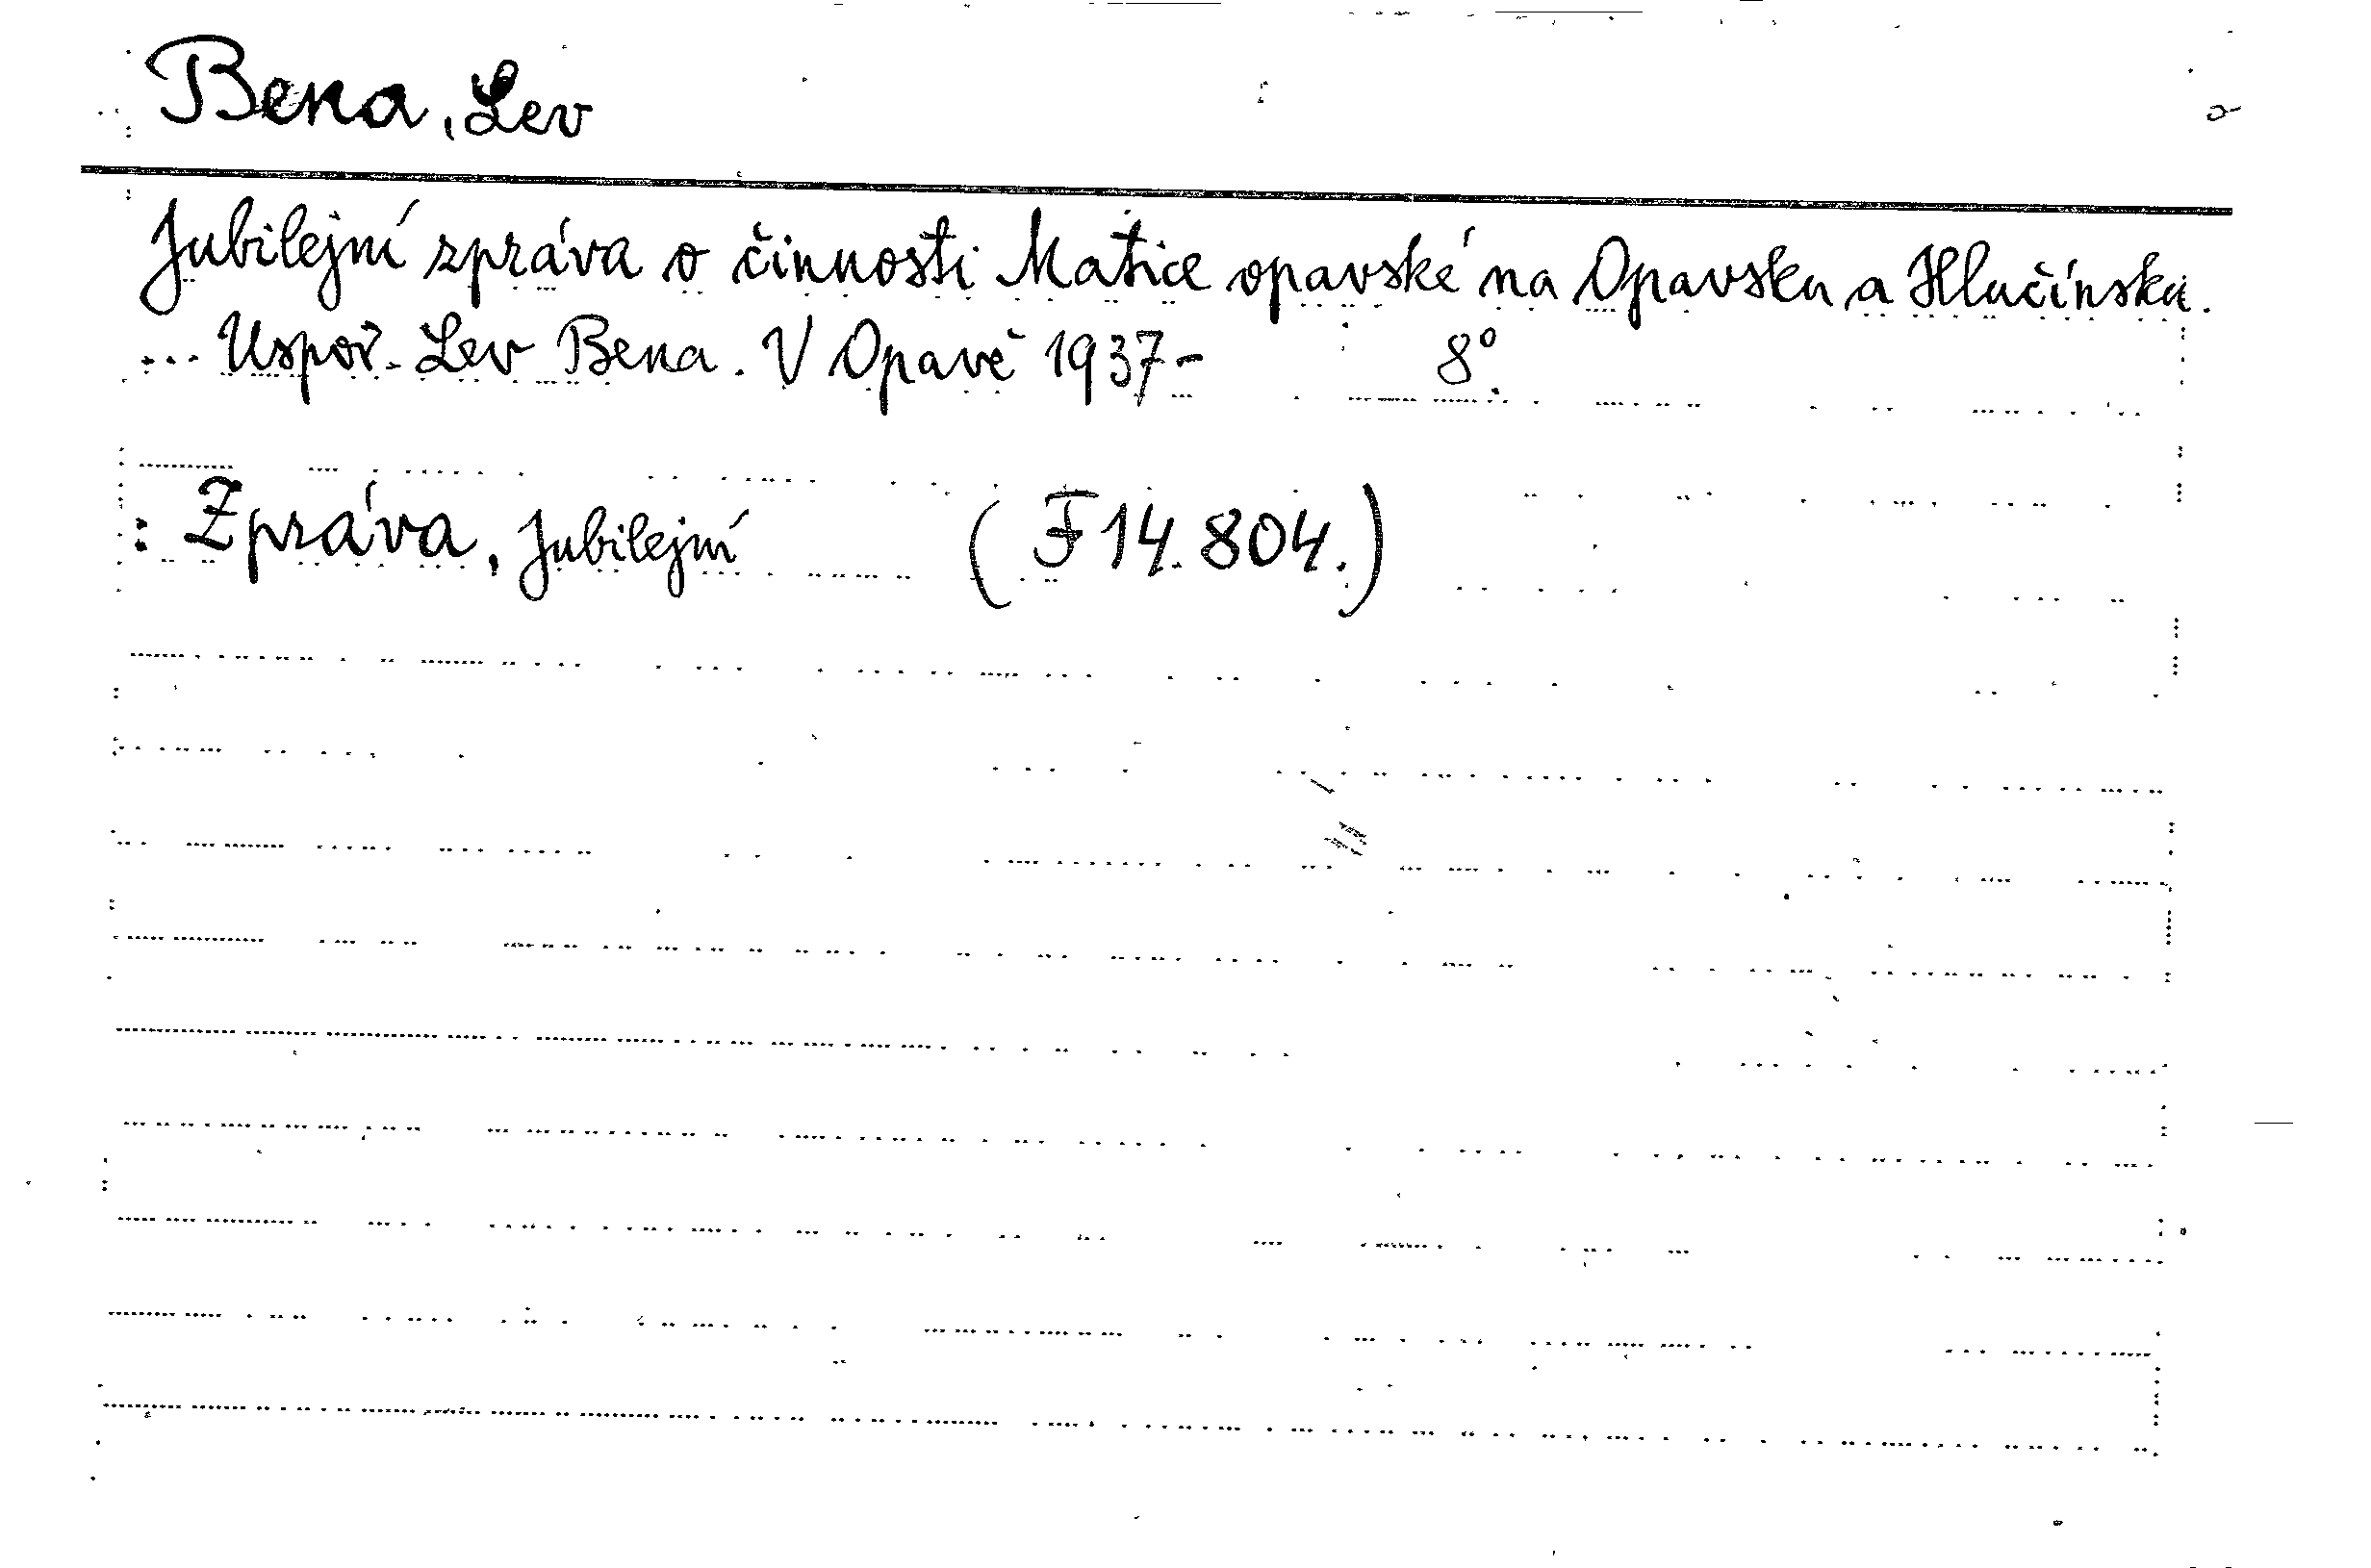 Bena, Lev
Jubilejní zpráva o činnosti Matice opavské na Opavsku a Hlučínsku.
... Uspoř. Lev Bena. V Opavě 1937- 8°.
: Zpráva, Jubilejní (F 14.804.)